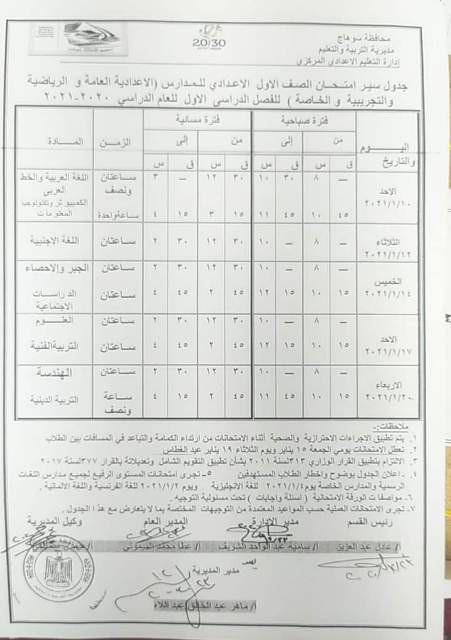 محافظة سوهاج
مديرية التربية والتعليم
إدارة التعليم الاعدادي المركزي
20/30
جدول سير امتحان الصف الاول الاعدادي للمدارس (الاعدادية العامة و الرياضية
والتجريبية و الخاصة ) للفصل الدراسي الاول للعام الدراسي ٢٠٢٠-٢٠٢١
اليوم والتاريخ فترة صباحية فترة مسائية الزمن المادة
من إلى من إلى
ق س ق س ق س ق س
الاحد ٢٠٢١/١/١٠
— ٨ ٣٠ ١٠ ٣٠ ١٢ — ٣ ساعتان ونصف اللغة العربية والخط العربي
٤٥ ١٠ ٤٥ ١١ ١٥ ٣ ١٥ ٤ ساعة واحدة الكمبيوتر وتكنولوجيا المعلومات
الثلاثاء ٢٠٢١/١/١٢
— ٨ — ١٠ ٣٠ ١٢ ٣٠ ٢ ساعتان اللغة الاجنبية
الخميس ٢٠٢١/١/١٤
— ٨ — ١٠ ٣٠ ١٢ ٣٠ ٢ ساعتان الجبر والاحصاء
١٥ ١٠ ١٥ ١٢ ٤٥ ٢ ٤٥ ٤ ساعتان الدراسات الاجتماعية
الاحد ٢٠٢١/١/١٧
— ٨ — ١٠ ٣٠ ١٢ ٣٠ ٢ ساعتان العلوم
١٥ ١٠ ١٥ ١٢ ٤٥ ٢ ٤٥ ٤ ساعتان التربية الفنية
الاربعاء ٢٠٢١/١/٢٠
— ٨ — ١٠ ٣٠ ١٢ ٣٠ ٢ ساعتان الهندسة
١٥ ١٠ ٤٥ ١١ ٤٥ ٢ ١٥ ٤ ساعة ونصف التربية الدينية
ملاحظات:
١. يتم تطبيق الاجراءات الاحترازية والصحية أثناء الامتحانات من ارتداء الكمامة والتباعد في المسافات بين الطلاب
٢. تعطل الامتحانات يومي الجمعة ١٥ يناير ويوم الثلاثاء ١٩ يناير عيد الغطاس.
٣. الالتزام بتطبيق القرار الوزاري ٣١٣ لسنة ٢٠١١ بشأن تطبيق التقويم الشامل وتعديلاته بالقرار ٣٧٧ لسنة ٢٠١٧
٤. اعلان الجدول بوضوح وإخطار الطلاب المستهدفين ٥. تجرى امتحانات المستوى الرفيع لجميع مدارس اللغات
الرسمية والمدارس الخاصة يوم للغة الانجليزية ويوم ٢٠٢١/١/٢ للغة الفرنسية واللغة الالمانية .
٦. مواصفات الورقة الامتحانية ( اسئلة واجابات ) تحت مسئولية التوجيه .
٧. تجرى الامتحانات العملية حسب المواعيد المعتمدة من التوجيهات المختصة بما لا يتعارض مع هذا الجدول .
رئيس القسم مدير الإدارة المدير العام وكيل المديرية
أ/ عادل عبد العزيز أ/ سامية عبد الواحد الشريف أ/ عطا محمد
مدير المديرية
أ/ ماهر عبد الخالق عبد اللاه